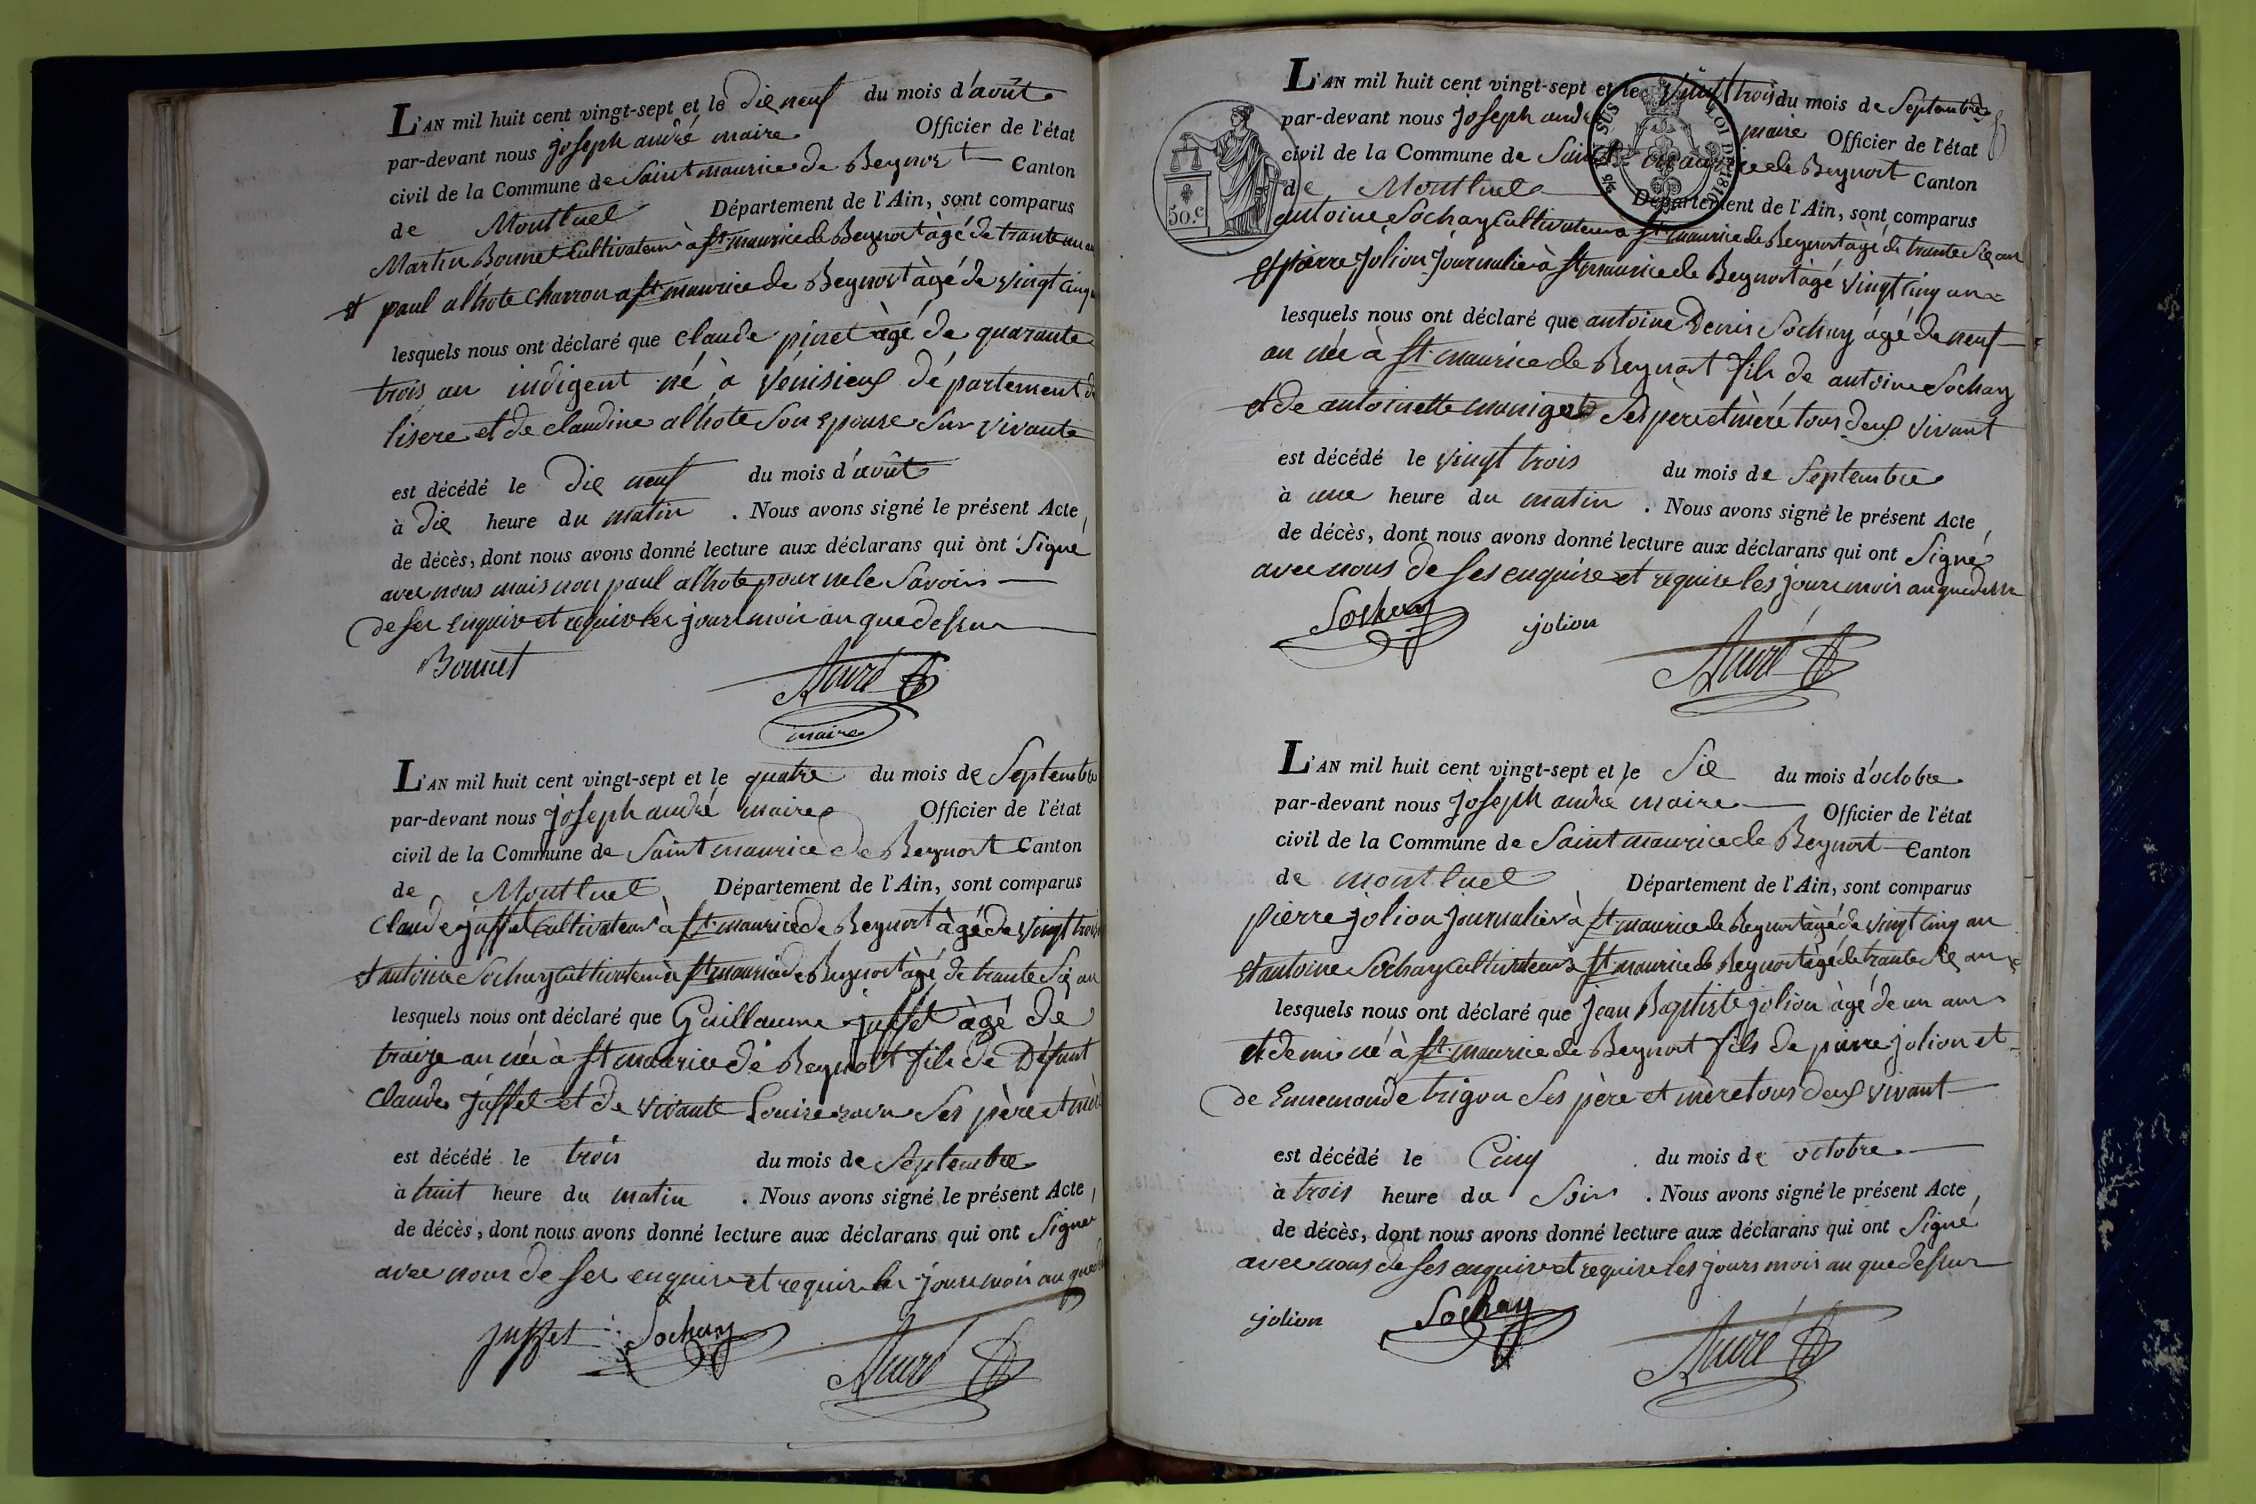 L'AN mil huit cent vingt-sept et le dix neuf du mois d'août
par-devant nous joseph andré maire Officier de l'état
civil de la Commune de Saint maurice de Beynost Canton
de Montluel Département de l'Ain, sont comparus
Martin Bonnet Cultivateur à St maurice de Beynost àgé de trante un an
et paul alhote charron a St maurice de Beynost àgé de vingt cinq
lesquels nous ont déclaré que claude pinet àgé de quarante
trois an indigent né à Vénisieux département de
lisere et de claudine alhote Son epouse Sur vivante
est décédé le dix neuf du mois d'août
à dix heure du matin . Nous avons signé le présent Acte
de décès, dont nous avons donné lecture aux déclarans qui ont Signé
avec nous mais non paul alhote pour ne le Savoir
de ses enquis et requis les jour mois an que dessus
Bonnet
André
maire
L'AN mil huit cent vingt-sept et le quatre du mois de Septembre
par-devant nous joseph andré maire Officier de l'état
civil de la Commune de Saint maurice de Beynost Canton
de Montluel Département de l'Ain, sont comparus
Claude juffet Cultivateur à St maurice de Beynost àgé de vingt trois
et antoine Sochay cultivateur à St maurice de Beynost àgé de trante six an
lesquels nous ont déclaré que Guillaume juffet àgé de
traize an née à St maurice de Beynost fils de Défunt
Claude juffet et de vivante Louise ses père et mère
est décédé le trois du mois de Septembre
à huit heure du matin . Nous avons signé le présent Acte
de décès, dont nous avons donné lecture aux déclarans qui ont Signer
avec nous de ses enquis et requis les jours mois an que
juffet Sochay
André
L'AN mil huit cent vingt-sept et le vingt trois du mois de Septembre
par-devant nous joseph andré maire Officier de l'état
civil de la Commune de Saint maurice de Beynost Canton
de Montluel Département de l'Ain, sont comparus
50.c
antoine Sochay Cultivateur a St maurice de Beynost àgé de trante six an
et pierre jolion journalier à St maurice de Beynost àgé vingt cinq an
lesquels nous ont déclaré que antoine Denis Sochay àgé de neuf
an née à St maurice de Beynost fils de antoine Sochay
et de antoinette maniget Ses père et mère tous deux vivant
est décédé le vingt trois du mois de Septembre
à une heure du matin . Nous avons signé le présent Acte
de décès, dont nous avons donné lecture aux déclarans qui ont Signé
avec nous de ses enquise et requise les jours mois an que dessus
Sochay jolion
André
L'AN mil huit cent vingt-sept et le Six du mois d'octobre
par-devant nous joseph andré maire Officier de l'état
civil de la Commune de Saint maurice de Beynost Canton
de montluel Département de l'Ain, sont comparus
pierre jolion journalier à St maurice de Beynost àgé de vingt cinq an
et antoine Sochay cultivateur à St maurice de Beynost àgé de trante six an
lesquels nous ont déclaré que jean Baptiste jolion àgé de un ans
et demi né à St maurice de Beynost fils de pierre jolion et
de Ennemonde trigon Ses père et mère tous deux vivant
est décédé le Cinq du mois de octobre
à trois heure du Soir . Nous avons signé le présent Acte
de décès, dont nous avons donné lecture aux déclarans qui ont Signé
avec nous de ses enquis et requise les jours mois an que dessus
jolion Sochay
André